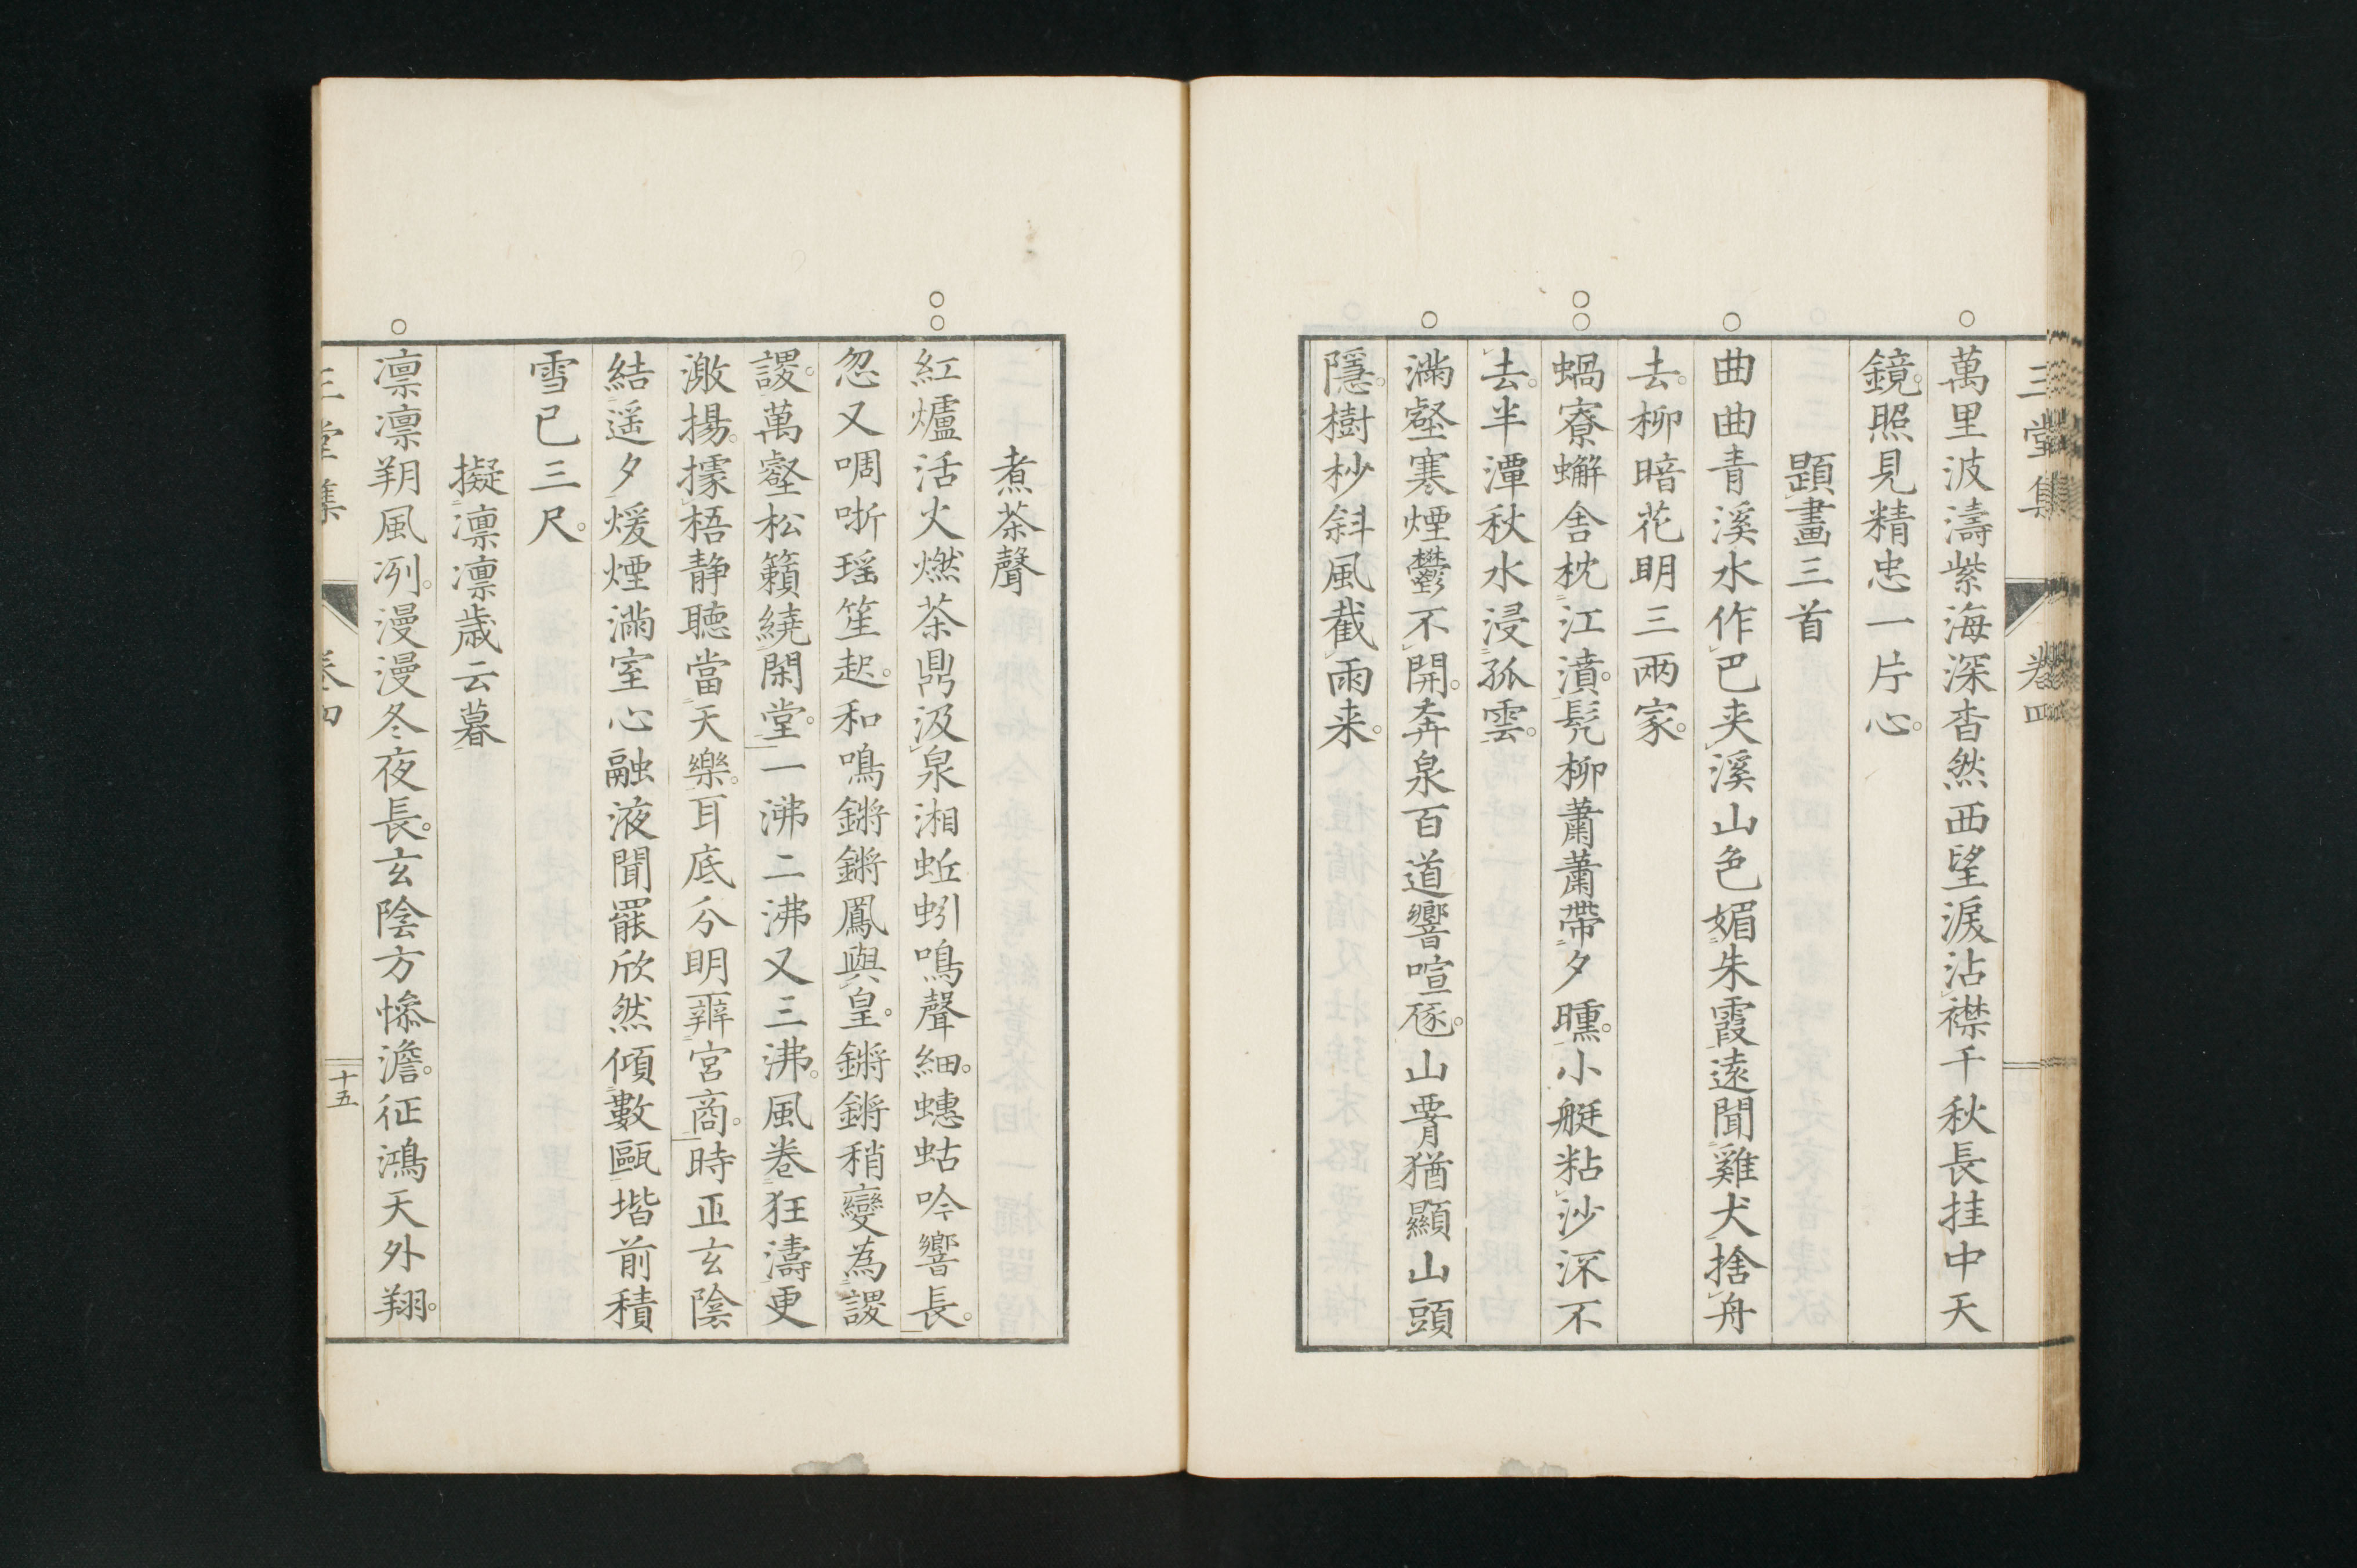 三堂集 卷四
萬里波濤紫海深杳然西望淚沾襟千秋長挂中天
鏡照見精忠一片心
題畫三首
曲曲青溪水作巴夾溪山色媚朱霞遠聞雞犬捨舟
去柳暗花明三兩家
蝸寮蠏舎枕江濆髡柳蕭蕭帶夕曛小艇粘沙深不
去半潭秋水浸孤雲
滿壑寒煙鬱不開奔泉百道響喧豗山霄猶顯山頭
隱樹杪斜風截雨来
煮茶聲
紅爐活火燃茶鼎汲泉湘蚯蚓鳴聲細蟪蛄吟響長
忽又啁哳瑶笙起和鳴鏘鏘鳳與皇鏘鏘稍變為謖
謖萬壑松籟繞閑堂一沸二沸又三沸風卷狂濤更
激揚據梧静聽當天樂耳底分明辨宮商時正玄陰
結遥夕煖煙滿室心融液聞罷欣然傾數甌堦前積
雪已三尺
擬凛凛歳云暮
凛凛朔風冽漫漫冬夜長玄陰方慘澹征鴻天外翔
三堂集 卷四 十五